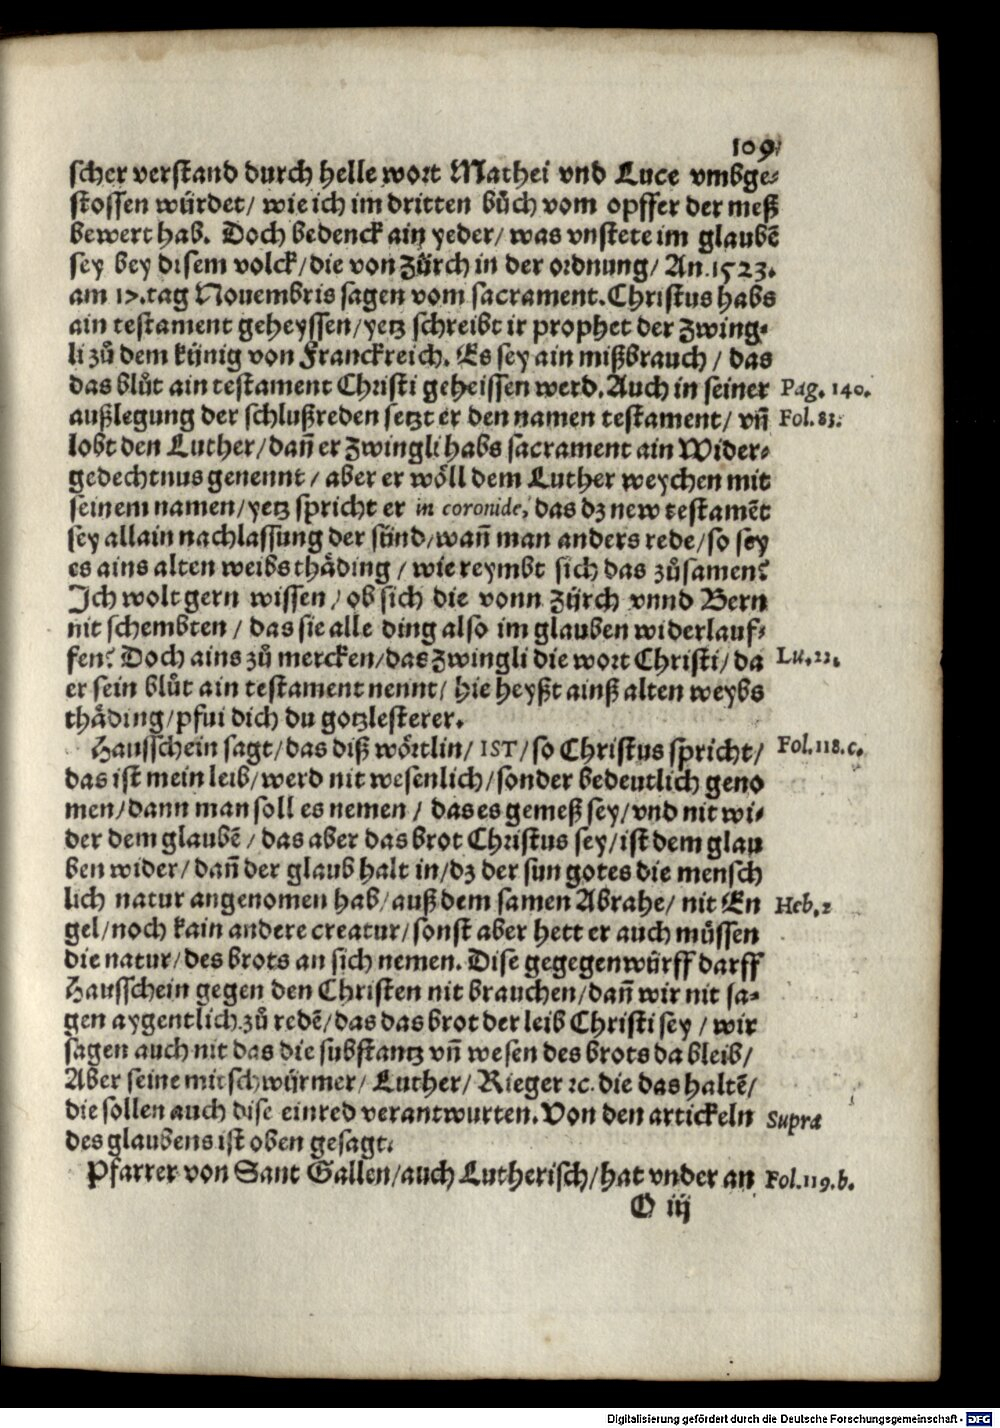 109.
scher verstand durch helle wort Mathei vnd Luce vmbge-
stossen würdet/ wie ich im dritten bůch vom opffer der meß
bewert hab. Doch bedenck ain yeder/ was vnstete im glaubē
sey bey disem volck/ die von Zürch in der ordnung/ An.1523.
am 17.tag Nouembris sagen vom sacrament. Christus habs
ain testament geheyssen/ yetz schreibt ir prophet der Zwing-
li zů dem künig von Franckreich. Es sey ain mißbrauch/ das
das blůt ain testament Christi geheissen werd. Auch in seiner Pag. 140.
außlegung der schlußreden setzt er den namen testament/ vñ Fol. 83.
lobt den Luther/ dañ er Zwingli habs sacrament ain Wider-
gedechtnus genennt/ aber er wöll dem Luther weychen mit
seinem namen/ yetz spricht er in coronide, das dz new testamēt
sey allain nachlassung der sünd/ wañ man anders rede/ so sey
es ains alten weibs thäding/ wie reymbt sich das zůsamen?
Ich wolt gern wissen/ ob sich die vonn Zürch vnnd Bern
nit schembten/ das sie alle ding also im glauben widerlauf-
fen? Doch ains zů mercken/ das Zwingli die wort Christi/ da Lu. 22.
er sein blůt ain testament nennt/ hie heyßt ainß alten weybs
thäding/ pfui dich du gotzlesterer.
Hausschein sagt/ das diß wörtlin/ IST/ so Christus spricht/ Fol. 118. c.
das ist mein leib/ werd nit wesenlich/ sonder bedeutlich geno
men/ dann man soll es nemen/ das es gemeß sey/ vnd nit wi-
der dem glaubē/ das aber das brot Christus sey/ ist dem glau
ben wider/ dañ der glaub halt in/ dz der sun gotes die mensch
lich natur angenomen hab/ auß dem samen Abrahe/ nit En Heb. 2
gel/ noch kain andere creatur/ sonst aber hett er auch müssen
die natur/ des brots an sich nemen. Dise gegegenwürff darff
Hausschein gegen den Christen nit brauchen/ dañ wir nit sa-
gen aygentlich zů redē/ das das brot der leib Christi sey/ wir
sagen auch nit das die substantz vñ wesen des brots da bleib/
Aber seine mitschwürmer/ Luther/ Rieger ꝛc. die das haltē/
die sollen auch dise einred verantwurten. Von den artickeln Supra
des glaubens ist oben gesagt.
Pfarrer von Sant Gallen/ auch Lutherisch/ hat vnder an Fol. 119. b.
O iij
Digitalisierung gefördert durch die Deutsche Forschungsgemeinschaft - DFG